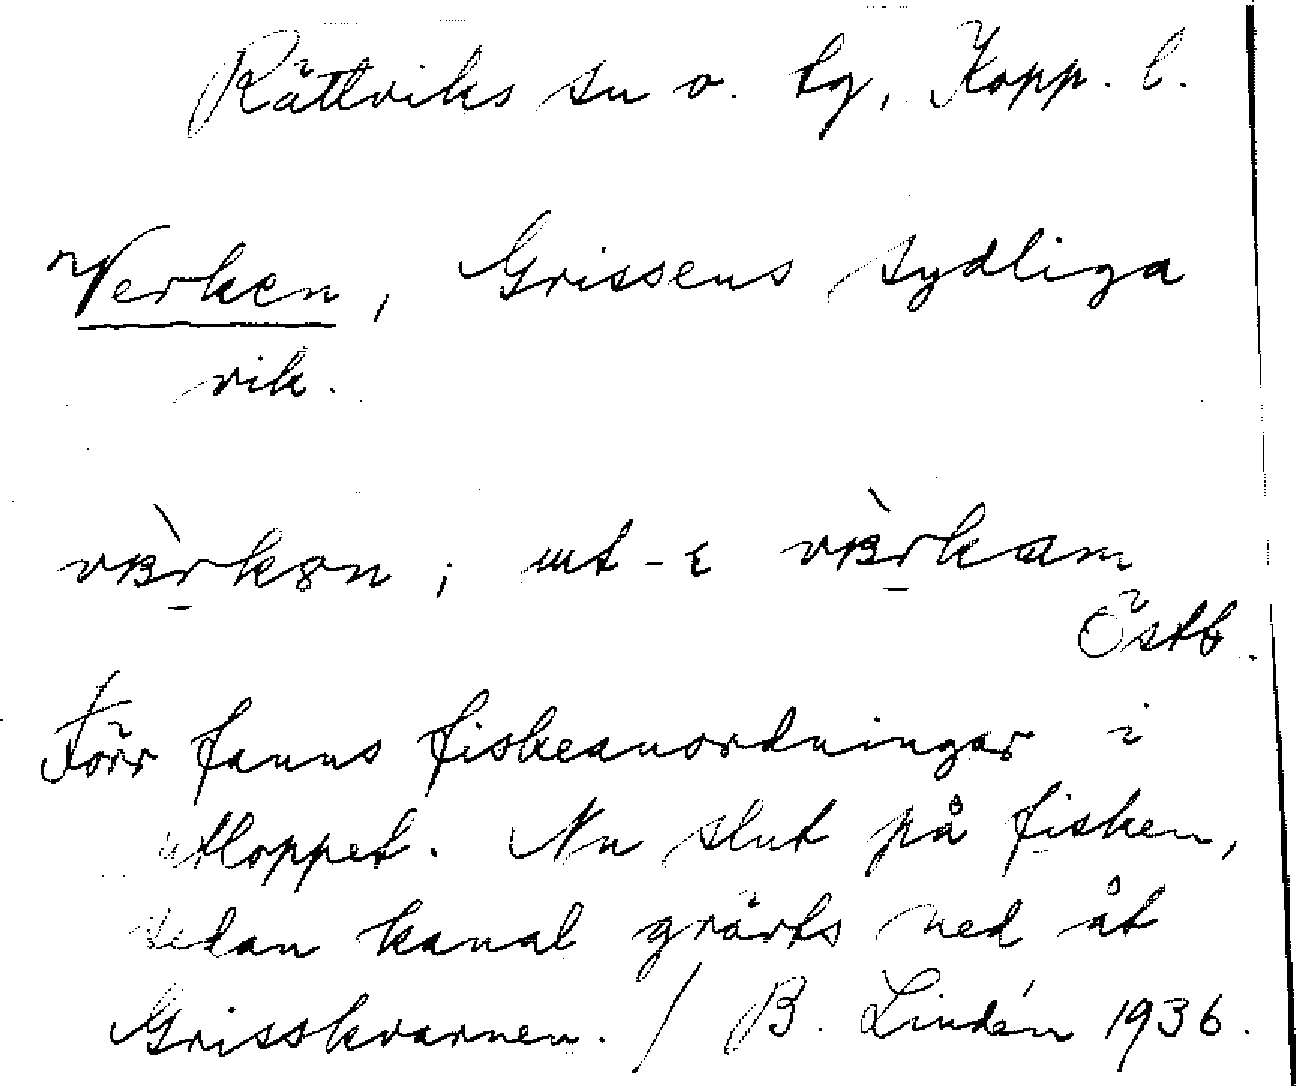 Rättviks sn o. tg, Kopp. l.
Verken, Grissens sydliga
vik.
vɐ̀rkən; ut-ı vɐ̀rkam
Östb.
Förr fanns fiskeanordningar i
utloppet. Nu slut på fisken,
sedan kanal grävts ned åt
Grisskvarnen. / B. Lindén 1936.